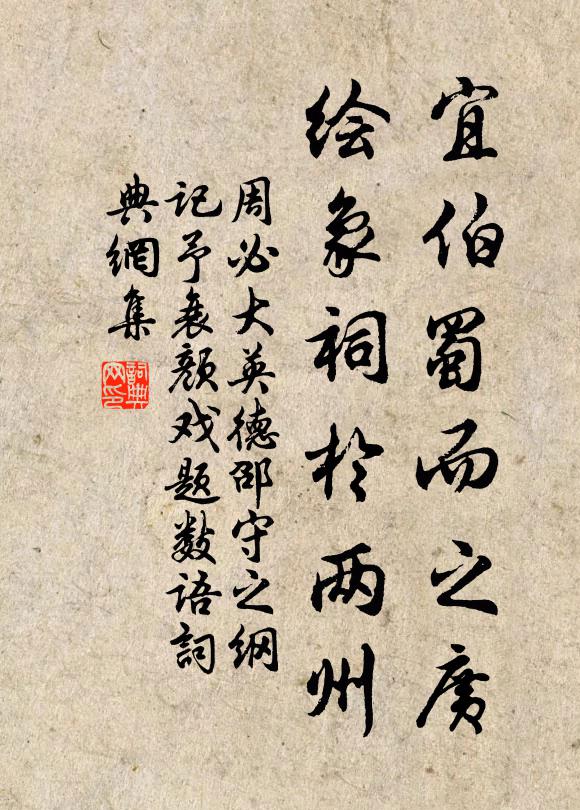 宜伯蜀而之廣
绘象祠於两州
周必大英德邵守之纲
记予衰颜戏题数语詞
典網集
詞典
网印